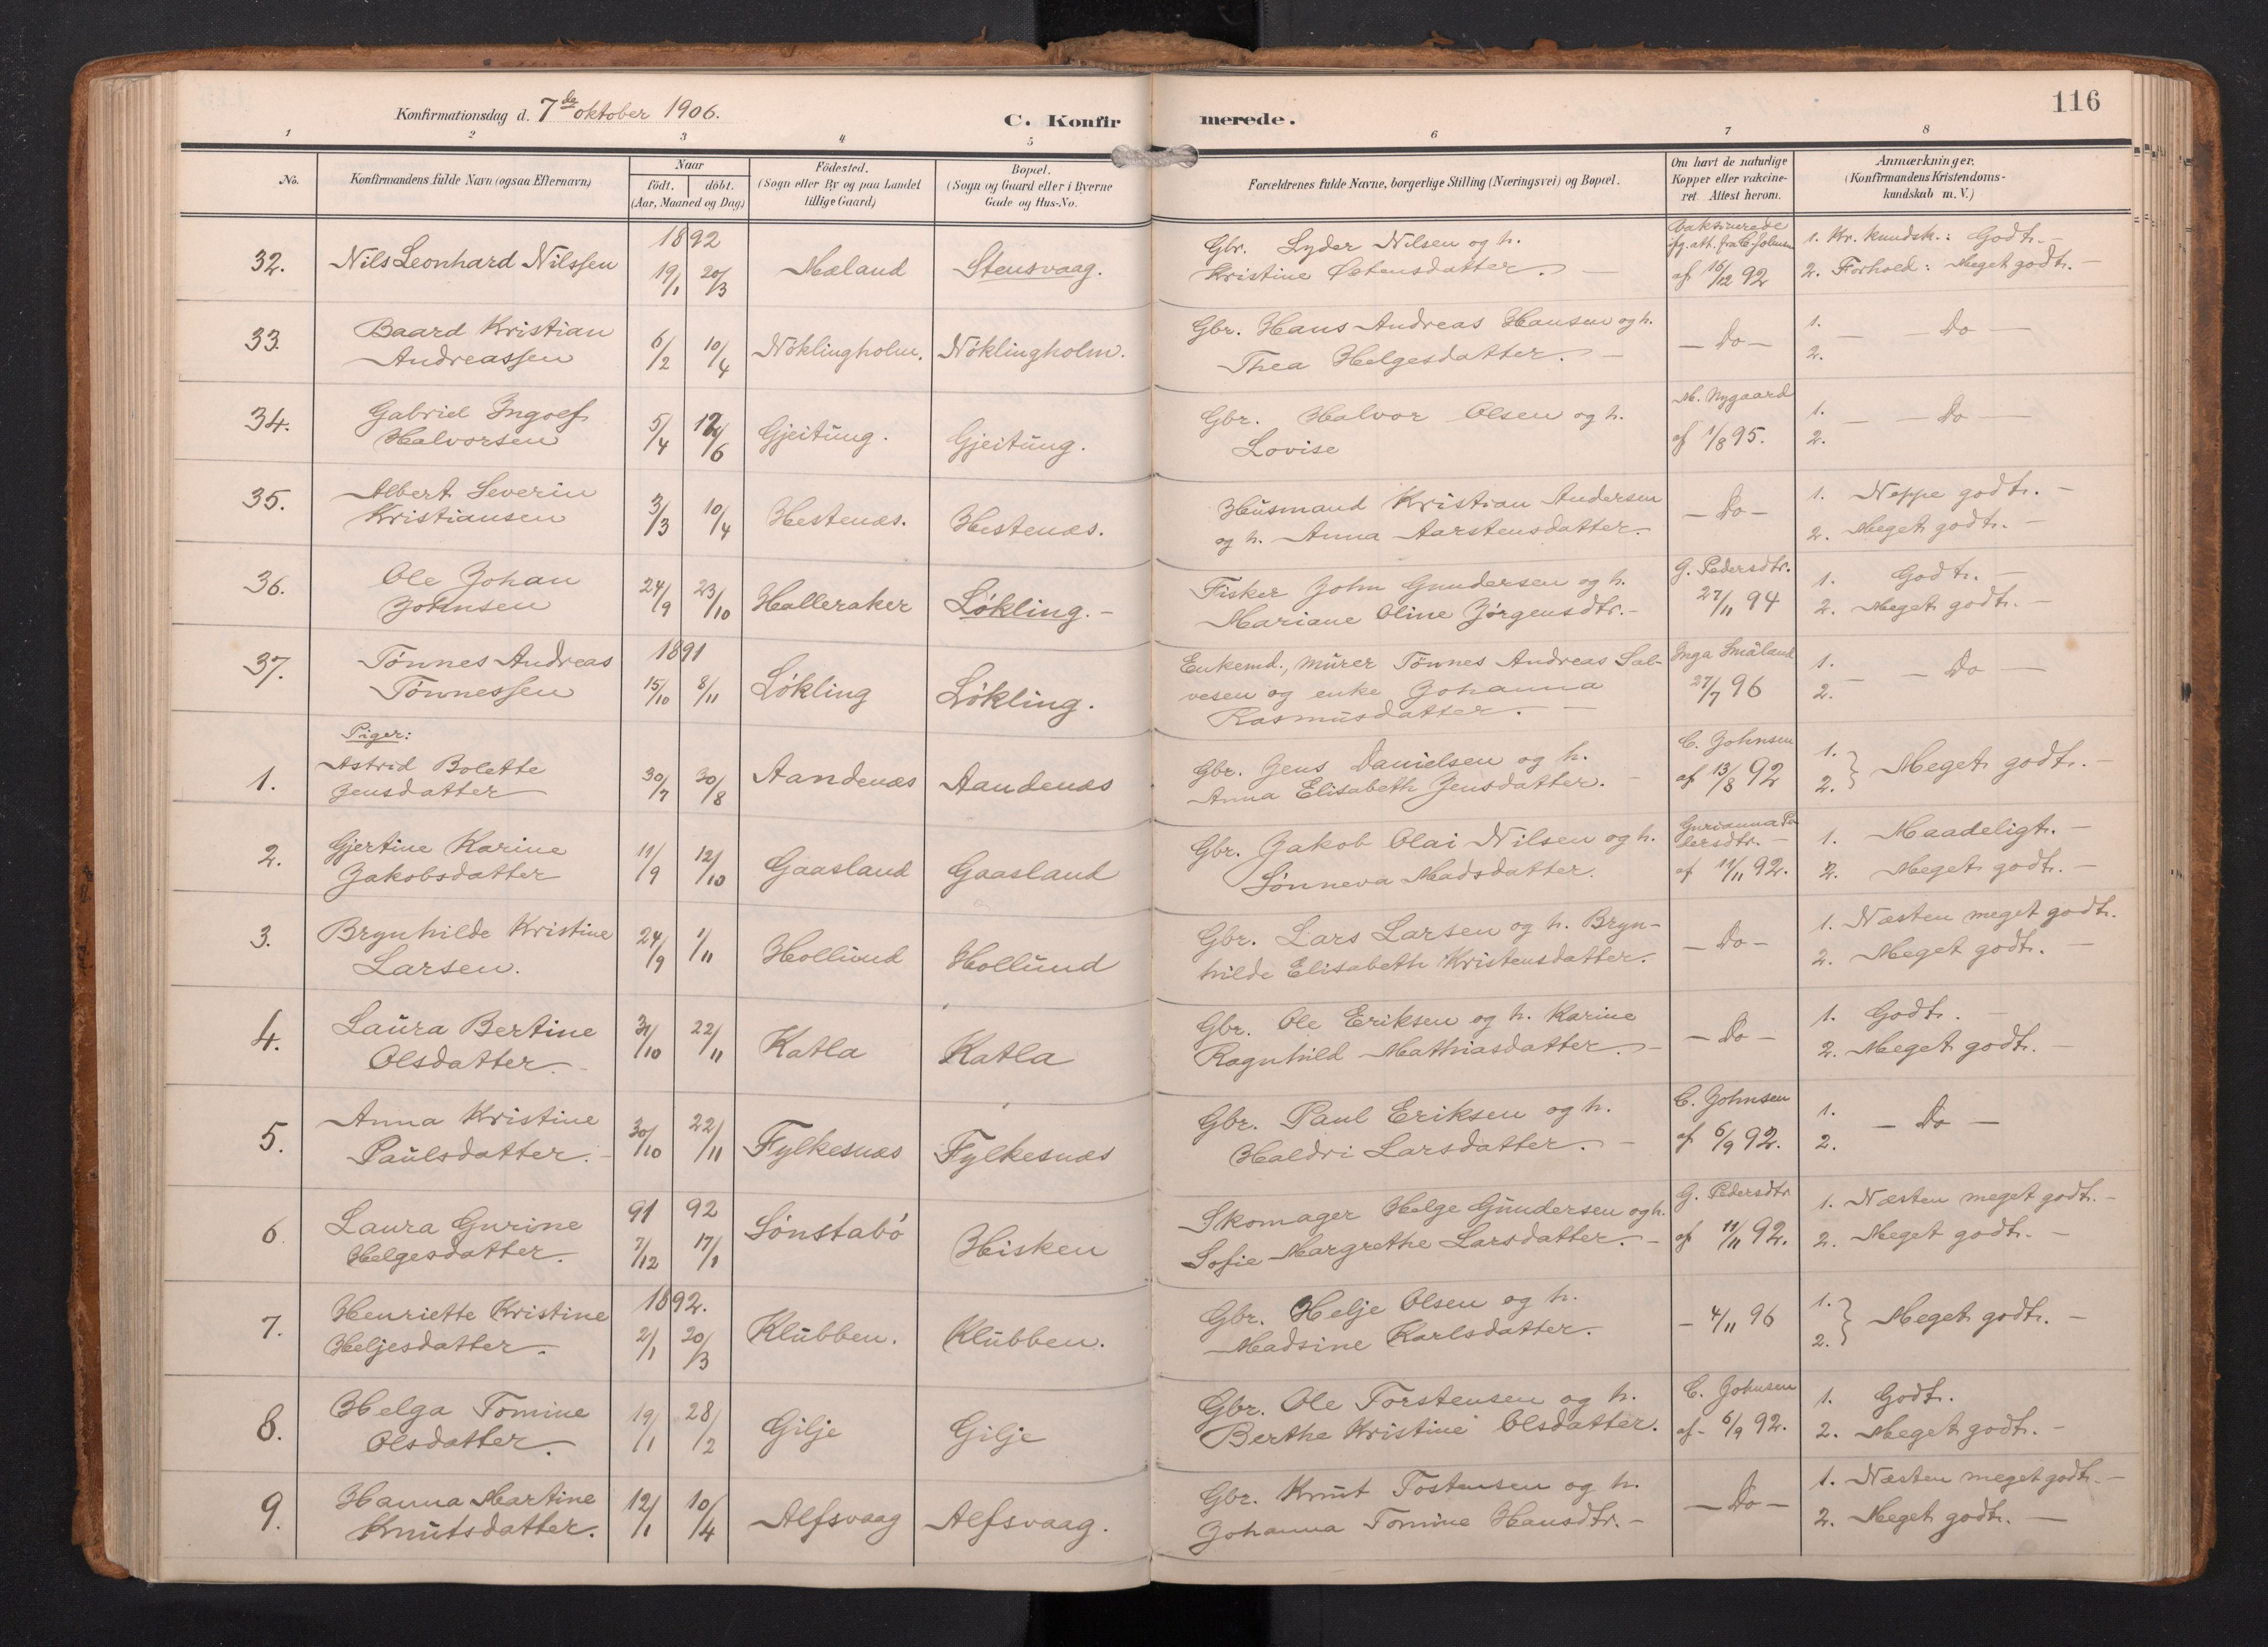 116
Konfirmationsdag d. 7de oktober 1906.
C. Konfirmerede.
1 2 3 4 5 6 7 8
No.
Konfirmandens fulde Navn (ogsaa Efternavn)
Naar
født. døbt.
(Aar, Maaned og Dag)
Fødested.
(Sogn eller By og paa Landet
tillige Gaard)
Bopæl.
(Sogn og Gaard eller i Byerne
Gade og Hus-No.
Forældrenes fulde Navne, borgerlige Stilling (Næringsvei) og Bopæl.
Om havt de naturlige
Kopper eller vakcine-
ret. Attest herom.
Anmærkninger.
(Konfirmandens Kristendoms-
kundskab m. V.)
32. Nils Leonhard Nilssen
1892
19/1 20/3 Mæland Stensvaag.
Gbr. Lyder Nilsen og h.
Kristine Østensdatter. –
Vaksinerede
ifg. att. fra C. Johnsen
af 16/12 92
1. Kr. kundsk.: Godt. –
2. Forhold: Meget godt. –
33. Baard Kristian
Andreassen
6/2 10/4 Nöklingholm. Nöklingholm.
Gbr. Hans Andreas Hansen og h.
Thea Helgesdatter. –
– Do –
1. – Do –
2.
34. Gabriel Ingolf
Halvorsen
5/4 12/6 Gjeitung. Gjeitung.
Gbr. Halvor Olsen og h.
Lovise
M. Nygaard
af 1/8 95.
1. – Do –
2.
35. Albert Severin
Kristiansen
3/3 10/4 Hestenæs. Hestenæs.
Husmand Kristian Andersen
og h. Anna Aarstensdatter. –
– Do –
1. Neppe godt. –
2. Meget godt. –
36. Ole Johan
Johnsen
24/9 23/10 Halleraker Lökling. –
Fisker John Gundersen og h.
Mariane Oline Jörgensdtr. –
G. Pedersdtr.
27/11 94
1. Godt. –
2. Meget godt. –
37. Tönnes Andreas
Tönnessen
1891
15/10 8/11 Lökling Lökling.
Enkemd., murer Tönnes Andreas Sal-
vesen og enke Johanna
Rasmusdatter. –
Inga Småland
27/7 96
1. – Do –
2.
Piger:
1. Astrid Bolette
Jensdatter
30/7 30/8 Aandenæs Aandenæs
Gbr. Jens Danielsen og h.
Anna Elisabeth Jensdatter. –
C. Johnsen
af 13/8 92
1. } Meget godt. –
2.
2. Gjertine Karine
Jakobsdatter
11/9 12/10 Gaasland Gaasland
Gbr. Jakob Olai Nilsen og h.
Sönneva Madsdatter.
Gurianna Pe
dersdtr. –
af 11/11 92.
1. Maadeligt. –
2. Meget godt. –
3. Brynhilde Kristine
Larsen.
24/9 1/11 Hollund Hollund
Gbr. Lars Larsen og h. Bryn-
hilde Elisabeth Kristensdatter.
– Do –
1. Næsten meget godt.
2. Meget godt. –
4. Laura Bertine
Olsdatter. –
31/10 22/11 Katla Katla
Gbr. Ole Eriksen og h. Karine
Ragnhild Mathiasdatter. –
– Do –
1. Godt. –
2. Meget godt. –
5. Anna Kristine
Paulsdatter. –
30/10 22/11 Fylkesnæs Fylkesnæs
Gbr. Paul Eriksen og h.
Haldri Larsdatter. –
C. Johnsen
af 6/9 92.
1. – Do –
2.
6. Laura Gurine
Helgesdatter.
91 92
7/12 17/1 Sönstabö Hisken
Skomager Helge Gundersen og h.
Sofie Margrethe Larsdatter. –
G. Pedersdtr
af 11/11 92.
1. Næsten meget godt. –
2. Meget godt. –
7. Henriette Kristine
Heljesdatter.
1892.
2/1 20/3 Klubben. Klubben.
Gbr. Helje Olsen og h.
Madsine Karlsdatter.
– 4/11 96
1. } Meget godt. –
2.
8. Helga Tomine
Olsdatter.
19/1 28/2 Gilje Gilje
Gbr. Ole Torstensen og h.
Berthe Kristine Olsdatter.
C. Johnsen
af – 6/9 92.
1. Godt.
2. Meget godt. –
9. Hanna Martine
Knutsdatter.
12/1 10/4 Alfsvaag Alfsvaag.
Gbr. Knut Tostensen og h.
Johanna Tomine Hansdtr. –
– Do –
1. Næsten meget godt. –
2. Meget godt. –